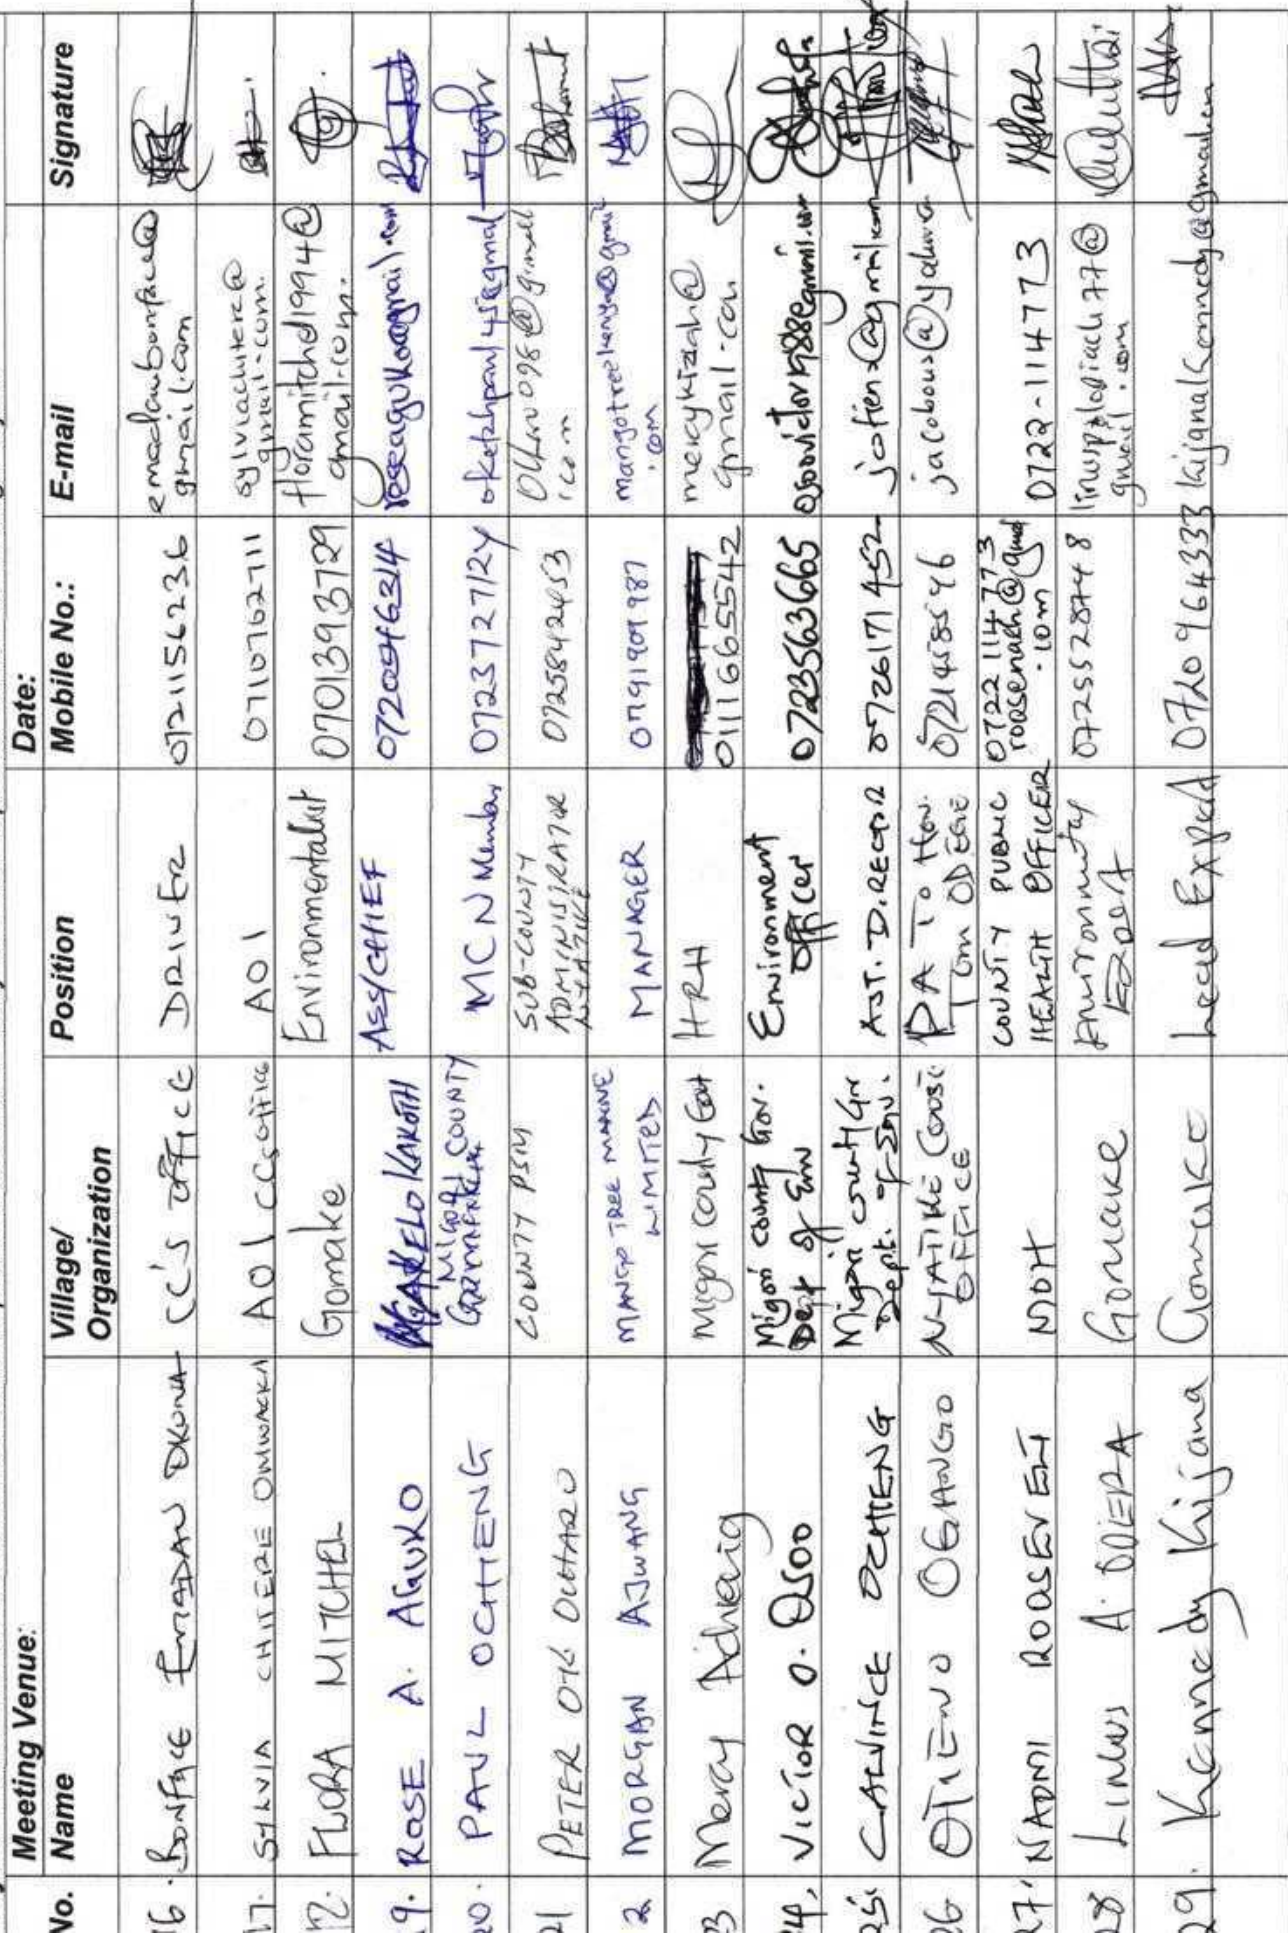 Meeting Venue: Date:
No. Name Village/ Organization Position Mobile No.: E-mail Signature
16. BONFACE EMADAU OKUNA CC'S OFFICE DRIVER 0721156236 emadaubonface@
gmail.com
17. SYLVIA CHITERE OMWACKA AOI CCS OFFICE AOI 0710762711 sylviachitere@
gmail.com.
12. FLORA MITCHEL Gomake Environmentalist 0701393729 floramitchel1994@
gmail.com.
19. ROSE A. AGUKO KAKOTH ASS/CHIEF roseaguko@gmail.com
20. PAUL OCHIENG MIGORI COUNTY
MCN Member 0723727124
21 PETER OTK COUNTY PSM SUB-COUNTY
ADMINISTRATOR
0725842453
.com
2 MORGAN AJWANG MANGO TREE MARINE
LIMITED
MANAGER 0791909987 mangotreekenya@gmail
.com
23 Mercy Achieng Migori County Govt HRH 0111665542 mercykizah@
gmail.com
24. VICTOR O. OSOO Migori County Gov.
Dept of Env
Environment
officer
0723563665 osoovictor1988@gmail.com
25. CALVINCE OCHIENG Migori County Gov
Dept. of Env.
AST. DIRECTOR 0726171452 jofienz@gmail.com
26 OTIENO OGANGO OFFICE
PA To Hon.
Tom ODEGE
0721458546
27. NAOMI ROOSEVELT MOH COUNTY PUBLIC
HEALTH OFFICER
0722 114 773
.com
0722-114773
28 LINUS A. ODERA Gomake Environmental
Expert
0725528748
gmail.com
29. Kennedy Kijana Gomake Lead Expert 0720964333 kijanakennedy@gmail.com